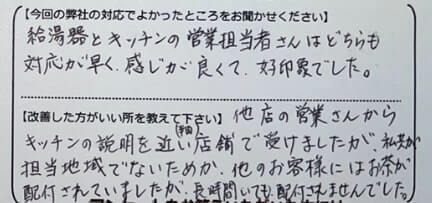 【今回の弊社の対応でよかったところをお聞かせください】
給湯器とキッチンの営業担当者さんはどちらも
対応が早く、感じが良くて、好印象でした。
【改善した方がいい所を教えて下さい】 他店の営業さんから
キッチンの説明を近い店舗で受けましたが、私共が
担当地域でないためか、他のお客様にはお茶が
配付されていましたが、長時間いても配付されませんでした。